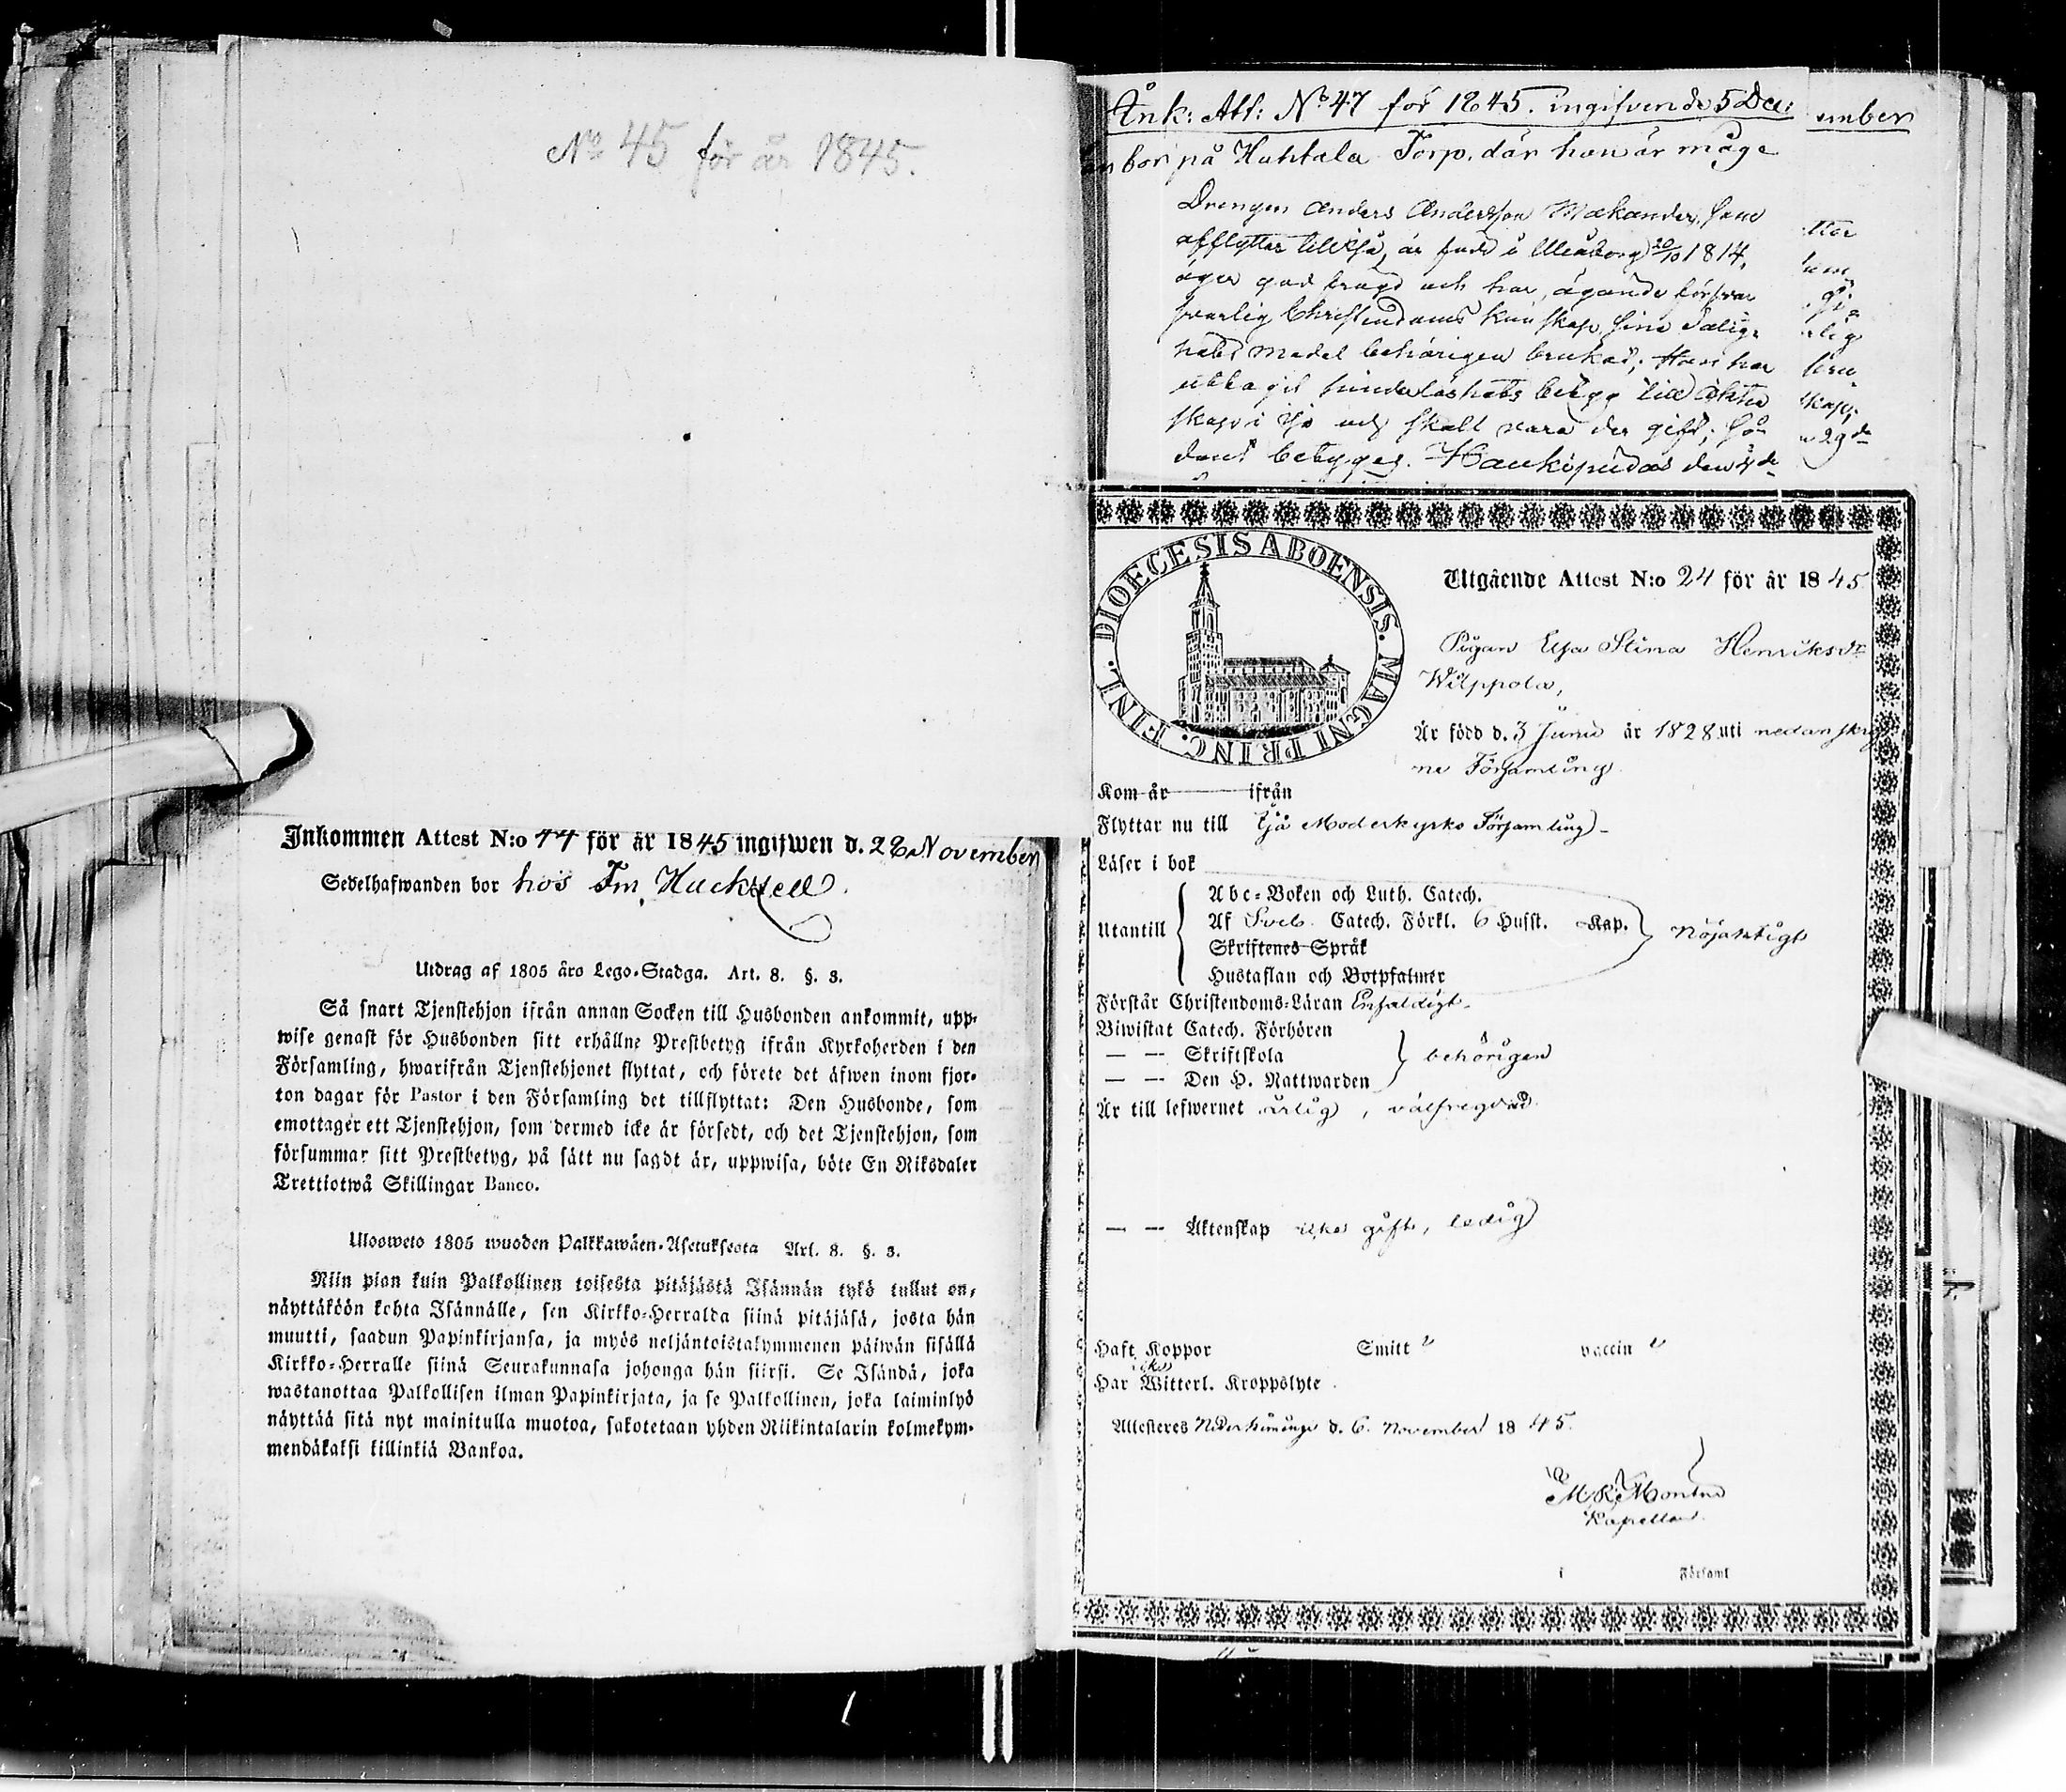 No 45 för år 1845.
Inkommen Attest N:o 44 för år 1845 ingifwen d. 28 November
Sedelhafwanden bor hos Fm, Hucksell.
Utdrag af 1805 års Lego-Stadga. Art. 8. §. 3.
Så snart Tjenstehjon ifrån annan Socken till Husbonden ankommit, upp-
wise genast för Husbonden sitt erhållne Prestbetyg ifrån Kyrkoherden i den
Församling, hwarifrån Tjenstehjonet flyttat, och förete det äfwen inom fjor-
ton dagar för Pastor i den Församling det tillflyttat: Den Husbonde, som
emottager ett Tjenstehjon, som dermed icke är försedt, och det Tjenstehjon, som
försummar sitt Prestbetyg, på sätt nu sagdt är, uppwisa, böte En Riksdaler
Trettiotwå Skillingar Banco.
Ulosweto 1805 wuoden Palkkawäen-Asetuksesta Art. 8. §. 3.
Niin pian kuin Palkollinen toisesta pitäjästä Isännän tykö tullut on,
näyttäköön kohta Isännälle, sen Kirkko-Herralda siinä pitäjäsä, josta hän
muutti, saadun Papinkirjansa, ja myös neljäntoistakymmenen päiwän sisällä
Kirkko-Herralle siinä Seurakunnasa johonga hän siirsi. Se Isändä, joka
wastanottaa Palkollisen ilman Papinkirjata, ja se Palkollinen, joka laiminlyö
näyttää sitä nyt mainitulla muotoa, sakotetaan yhden Riikintalarin kolmekym-
mendäkaksi killinkiä Bankoa.
Ank: Att: No 47 för 1845. ingifven de 5 De: ember
bor på Huhtala Torp. där han är måge
Drengen Anders Andersson Makander, som
afflyttar till Ijå, är född i Uleåborg 20/10 1814,
äger god frägd och har, ägande försvar
svarlig Christendoms kunskap, sine Salig-
hets medel behörigen brukat; Han har
uttagit hinderlöshets betyg till äkten
skap i Ijo och skall vara der gift; så-
dant betyges. Haukipudas den 4de
DIOECESIS ABOENSIS. MAGNI PRINC. FINL.
Utgående Attest N:o 24 för år 1845
Pigan Efva Stina Henriksdr
Wilppola,
Är född d. 3 Junii år 1828 uti nedanskrif
ne Församling.
Kom år ifrån
Flyttar nu till Ijå Moderkyrko Församling -
Läser i bok
Abc-Boken och Luth. Catech.
Utantill Af Sveb. Catech. Förkl. 6 Husst. Kap. nöjaktigt
Skriftenes Språk
Hustaflan och Botpsalmer
Förstår Christendoms-Läran Enfaldigt.
Biwistat Catech. Förhören
— — Skriftskola behörigen
— — Den H. Nattwarden
Är till lefwernet ärlig, välfregdad.
— — Äktenskap icke gift, ledig
Haft Koppor Smitt vaccin
icke
Har Witterl. Kroppslyte.
Attesteres Nederkiminge d. 6. November 1845.
Kapellan.
i Församl